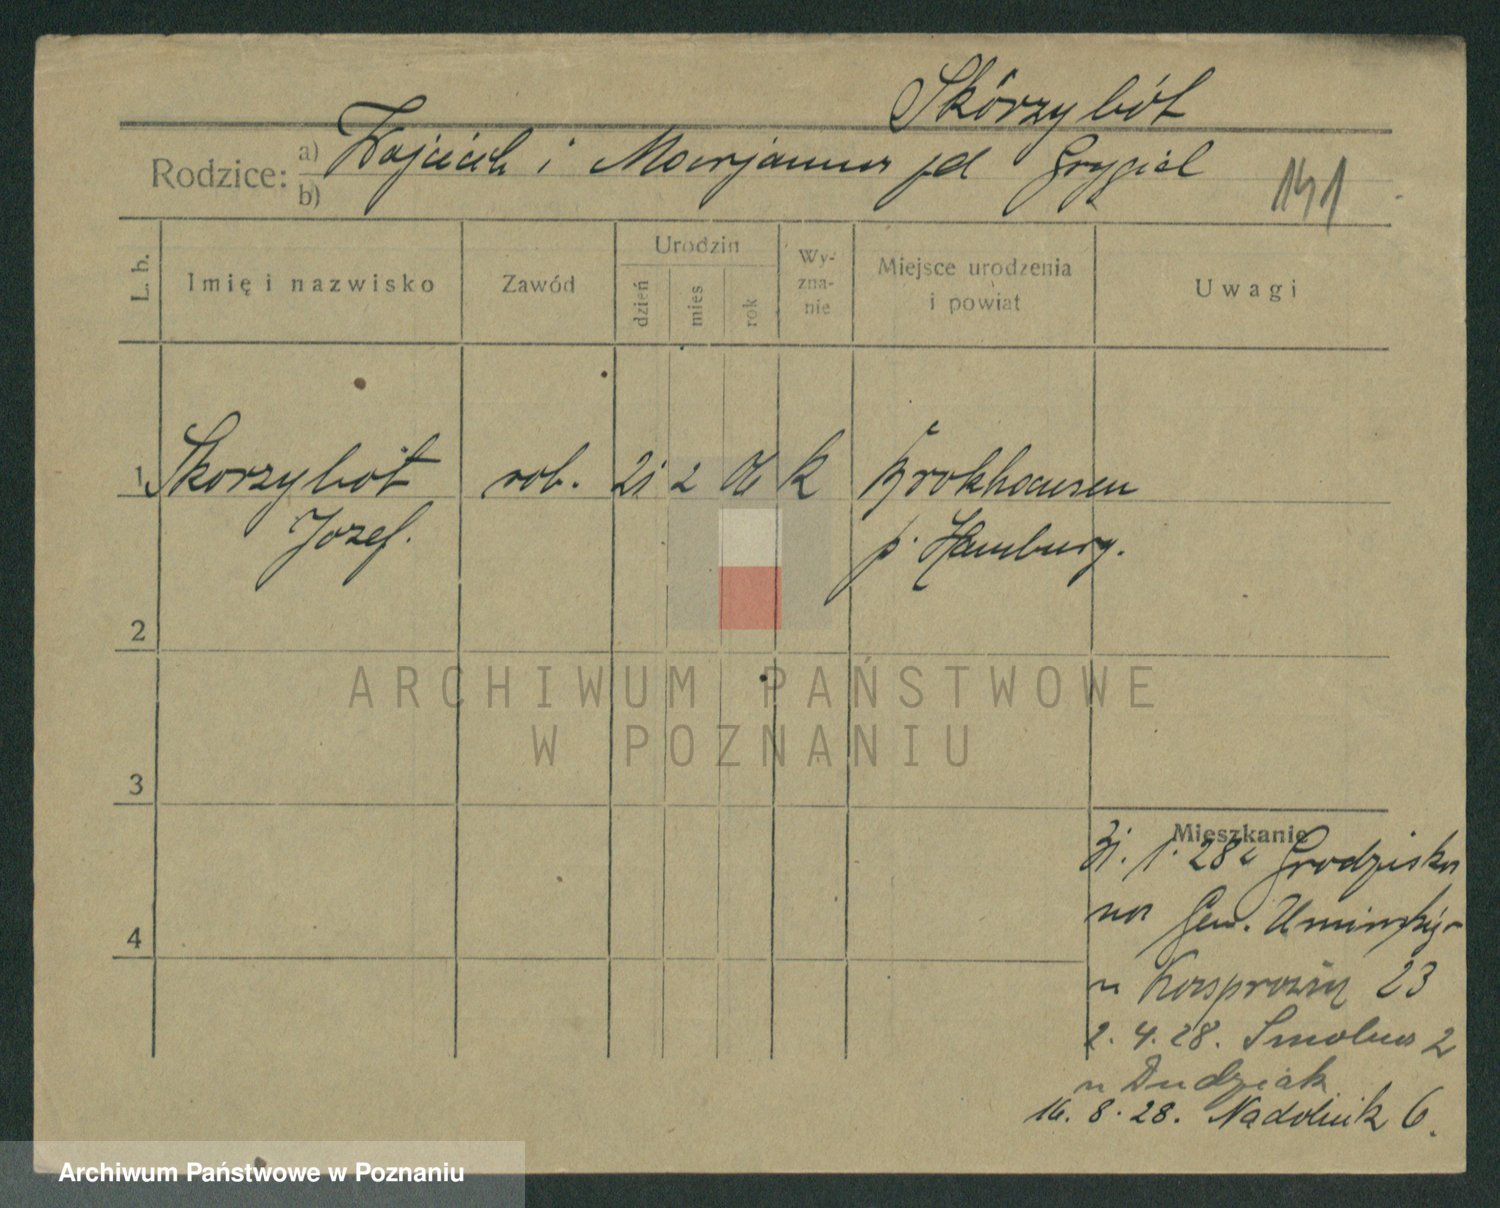 Skórzybót
Rodzice: a) Wojciech i Marjanna zd Grygiel
b)
141
L. b. Imię i nazwisko Zawód Urodzin dzień mies rok Wy-zna-nie Miejsce urodzenia i powiat Uwagi
1 Skorzybót rob. 21 2 06 k Brokhausen
Jozef. p. Hamburg.
2
ARCHIWUM PAŃSTWOWE
W POZNANIU
3
Mieszkanie
31. 1. 28 Grodziska
na Gen. Umińskiego
u 23
4
2. 4. 28. Smolna 2
u Dudziak
16. 8. 28. Nadolnik 6.
Archiwum Państwowe w Poznaniu